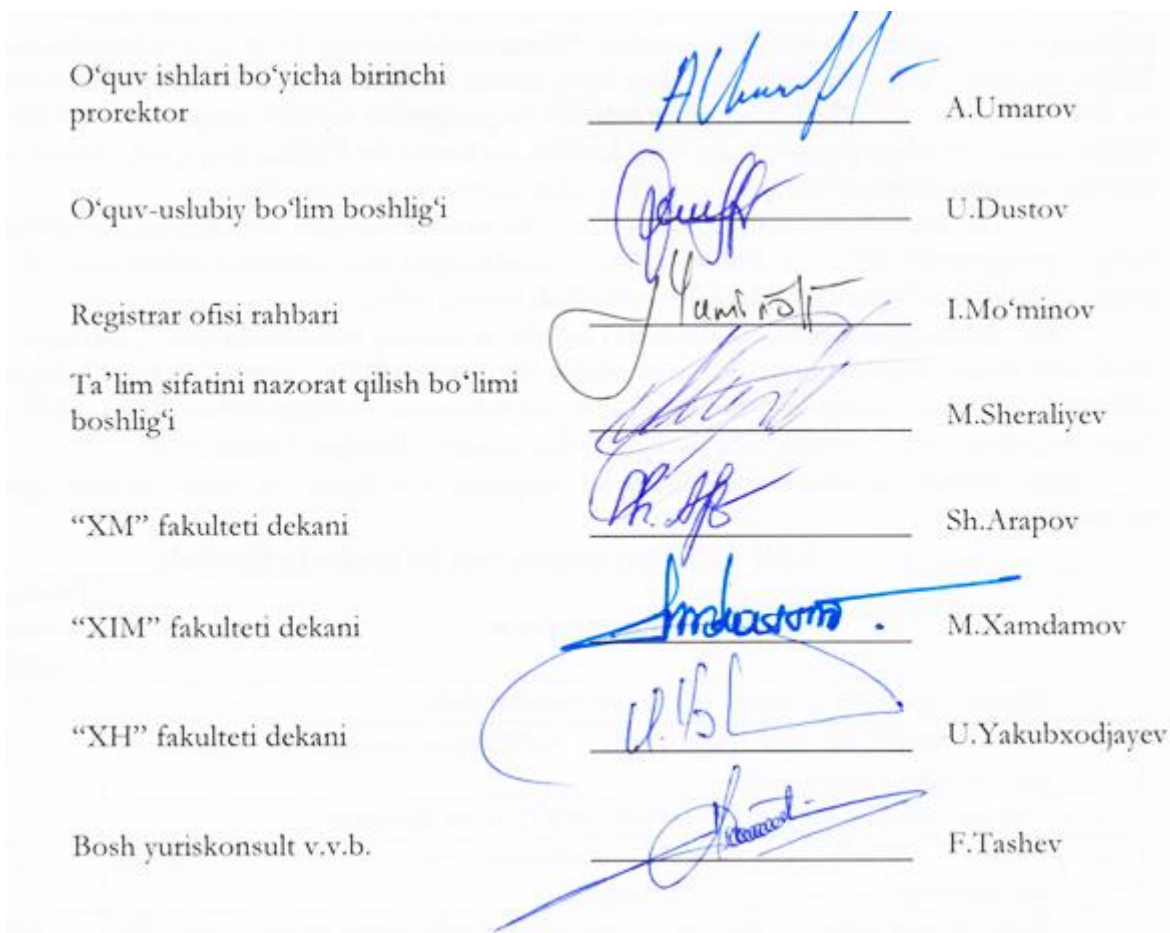 O‘quv ishlari bo‘yicha birinchi
prorektor A.Umarov
O‘quv-uslubiy bo‘lim boshlig‘i U.Dustov
Registrar ofisi rahbari I.Mo‘minov
Ta’lim sifatini nazorat qilish bo‘limi
boshlig‘i M.Sheraliyev
“XM” fakulteti dekani Sh.Arapov
“XIM” fakulteti dekani M.Xamdamov
“XH” fakulteti dekani U.Yakubxodjayev
Bosh yuriskonsult v.v.b. F.Tashev